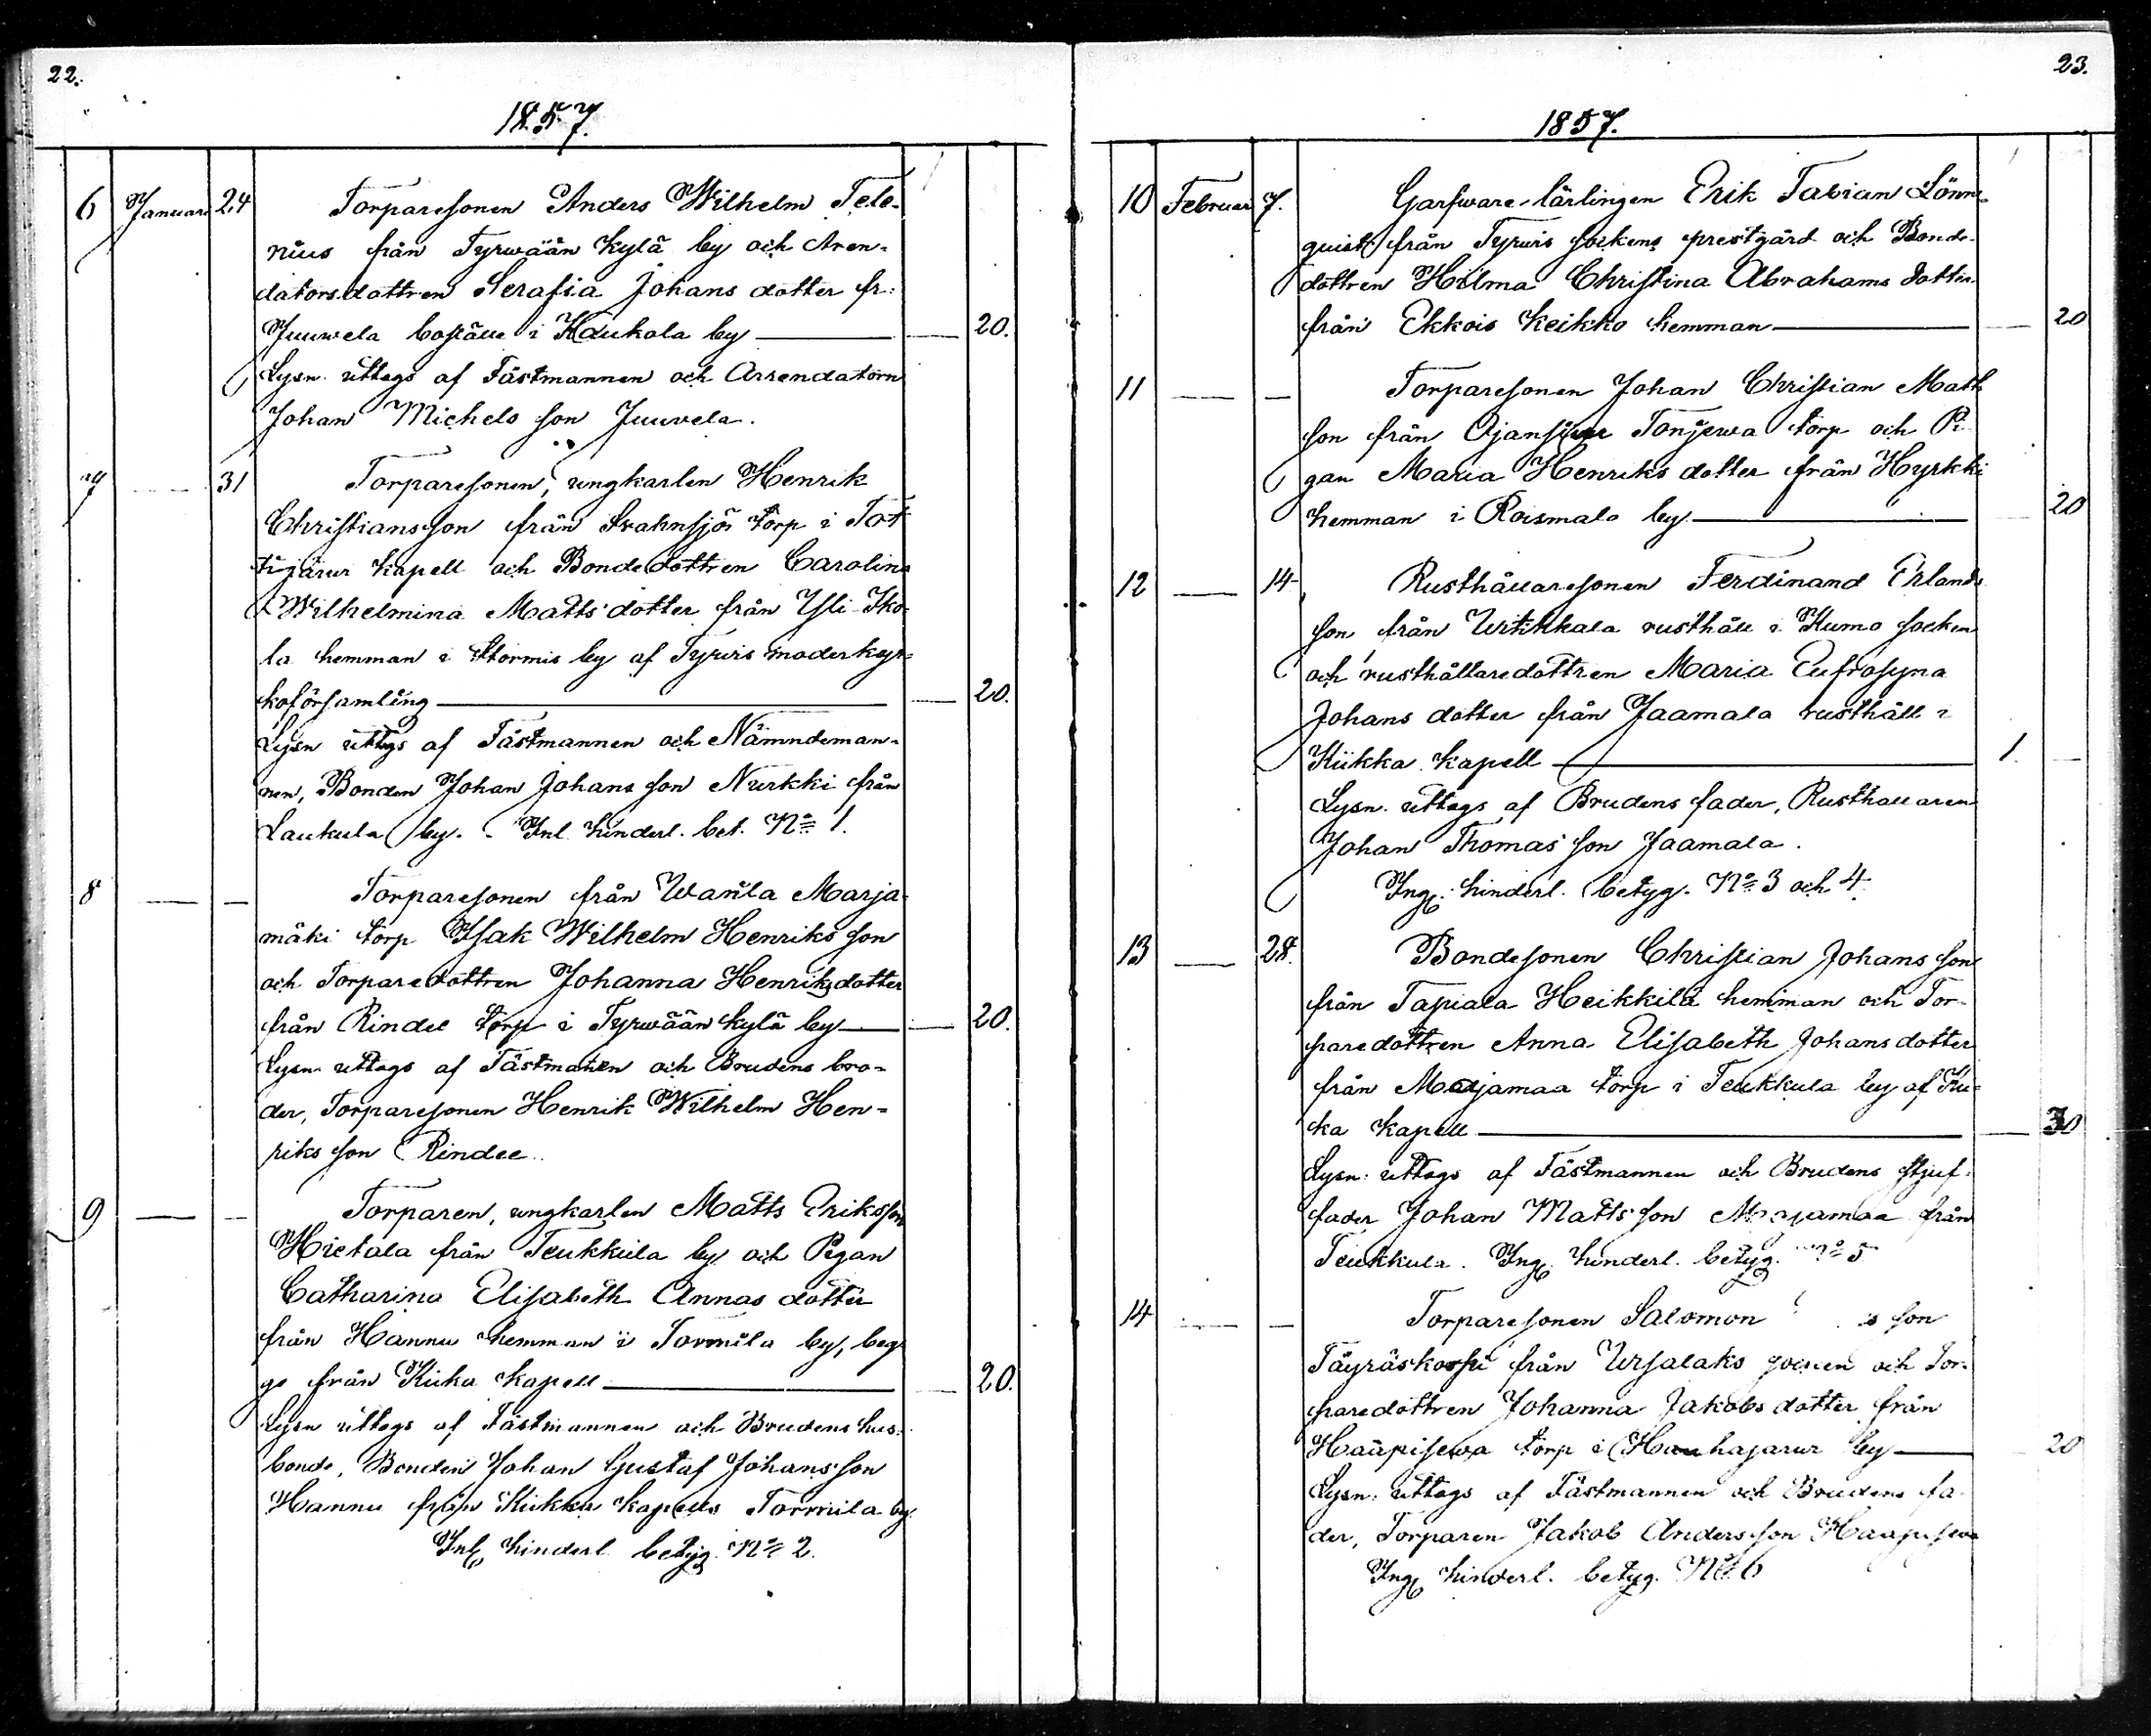 22.
1857.
6 Januari 24 Torparesonen Anders Wilhelm Tele-
nius från Tyrwään kylä by och Aren-
datorsdottren Serafia Johans dotter fr:
Juuvela boställe i Kaukola by — 20.
Lysn. uttogs af Fästmannen och Arrendatorn
Johan Michels son Juuvela.
7 — 31 Torparesonen, ungkarlen Henrik
Christiansson från Svahnsjö torp i Tot
tijärwi kapell och Bondedottren Carolina
Wilhelmina Matts dotter från Yli-Sko-
la hemman i Stormis by af Tyrvis moderkyr-
koförsamling — 20.
Lysn uttogs af Fästmannen och Nämndeman-
nen, Bonden Johan Johans son Nurkki från
Laukula by. - Inl. hinderl. bet. No 1.
8 — — Torparesonen från Warila Marja-
mäki torp Isak Wilhelm Henriks son
och Torparedottren Johanna Henriksdotter
från Rindee torp i Tyrwään kylä by — 20.
Lysn uttogs af Fästmannen och Brudens bro-
der, Torparesonen Henrik Wilhelm Hen-
riks son Rindee.
9 — — Torparen, ungkarlen Matts Eriksson
Hietala från Teukkula by och Pigan
Catharina Elisabeth Annas dotter
från Hannu hemman i Tormila by, beg-
ge från Kiika kapell — 20.
Lysn uttogs af Fästmannen och Brudens hus-
bonde, Bonden Johan Gustaf Johansson
Hannu från Kiikka kapells Tormila by.
Inl. hinderl. betyg. No 2.
23.
1857.
10 Februari 7. Garfware-lärlingen Erik Fabian Lönn-
quist från Tyrvis sockens prestgård och Bonde-
dottren Hilma Christina Abrahams dotter
från Ekkois Keikko hemman — 20
11 — — Torparesonen Johan Christian Matts
son från Tonjewa torp och Pi
gan Maria Henriks dotter från Hyrkki
hemman i Roismala by — 20
12 — 14 Rusthållaresonen Ferdinand Erlands
son från rusthåll i Kumo socken
och rusthållaredottren Maria Eufrosyna
Johans dotter från Jaamala rusthåll i
Kiikka kapell — 1. —
Lysn. uttogs af Brudens fader, Rusthållaren
Johan Thomas son Jaamala.
Ing. hinderl. betyg. No 3 och 4.
13 — 28. Bondesonen Christian Johans son
från Tapiala Heikkilä hemman och Tor-
paredottren Anna Elisabeth Johans dotter
från Marjamaa torp i Teukkula by af Kii-
ka kapell — 30
Lysn. uttogs af Fästmannen och Brudens stjuf-
fader Johan Matts son Marjamaa från
Teukkula. Ing. hinderl. betyg. No 5
14 — — Torparesonen Salomon s son
Täyräskorpi från Ursalaks socken och Tor-
paredottren Johanna Jakobs dotter från
Haapisewa torp i Houhajärwi by — 20
Lysn. uttogs af Fästmannen och Brudens fa-
der, Torparen Jakob Andersson Haapisewa
Ing. hinderl. betyg. No 6